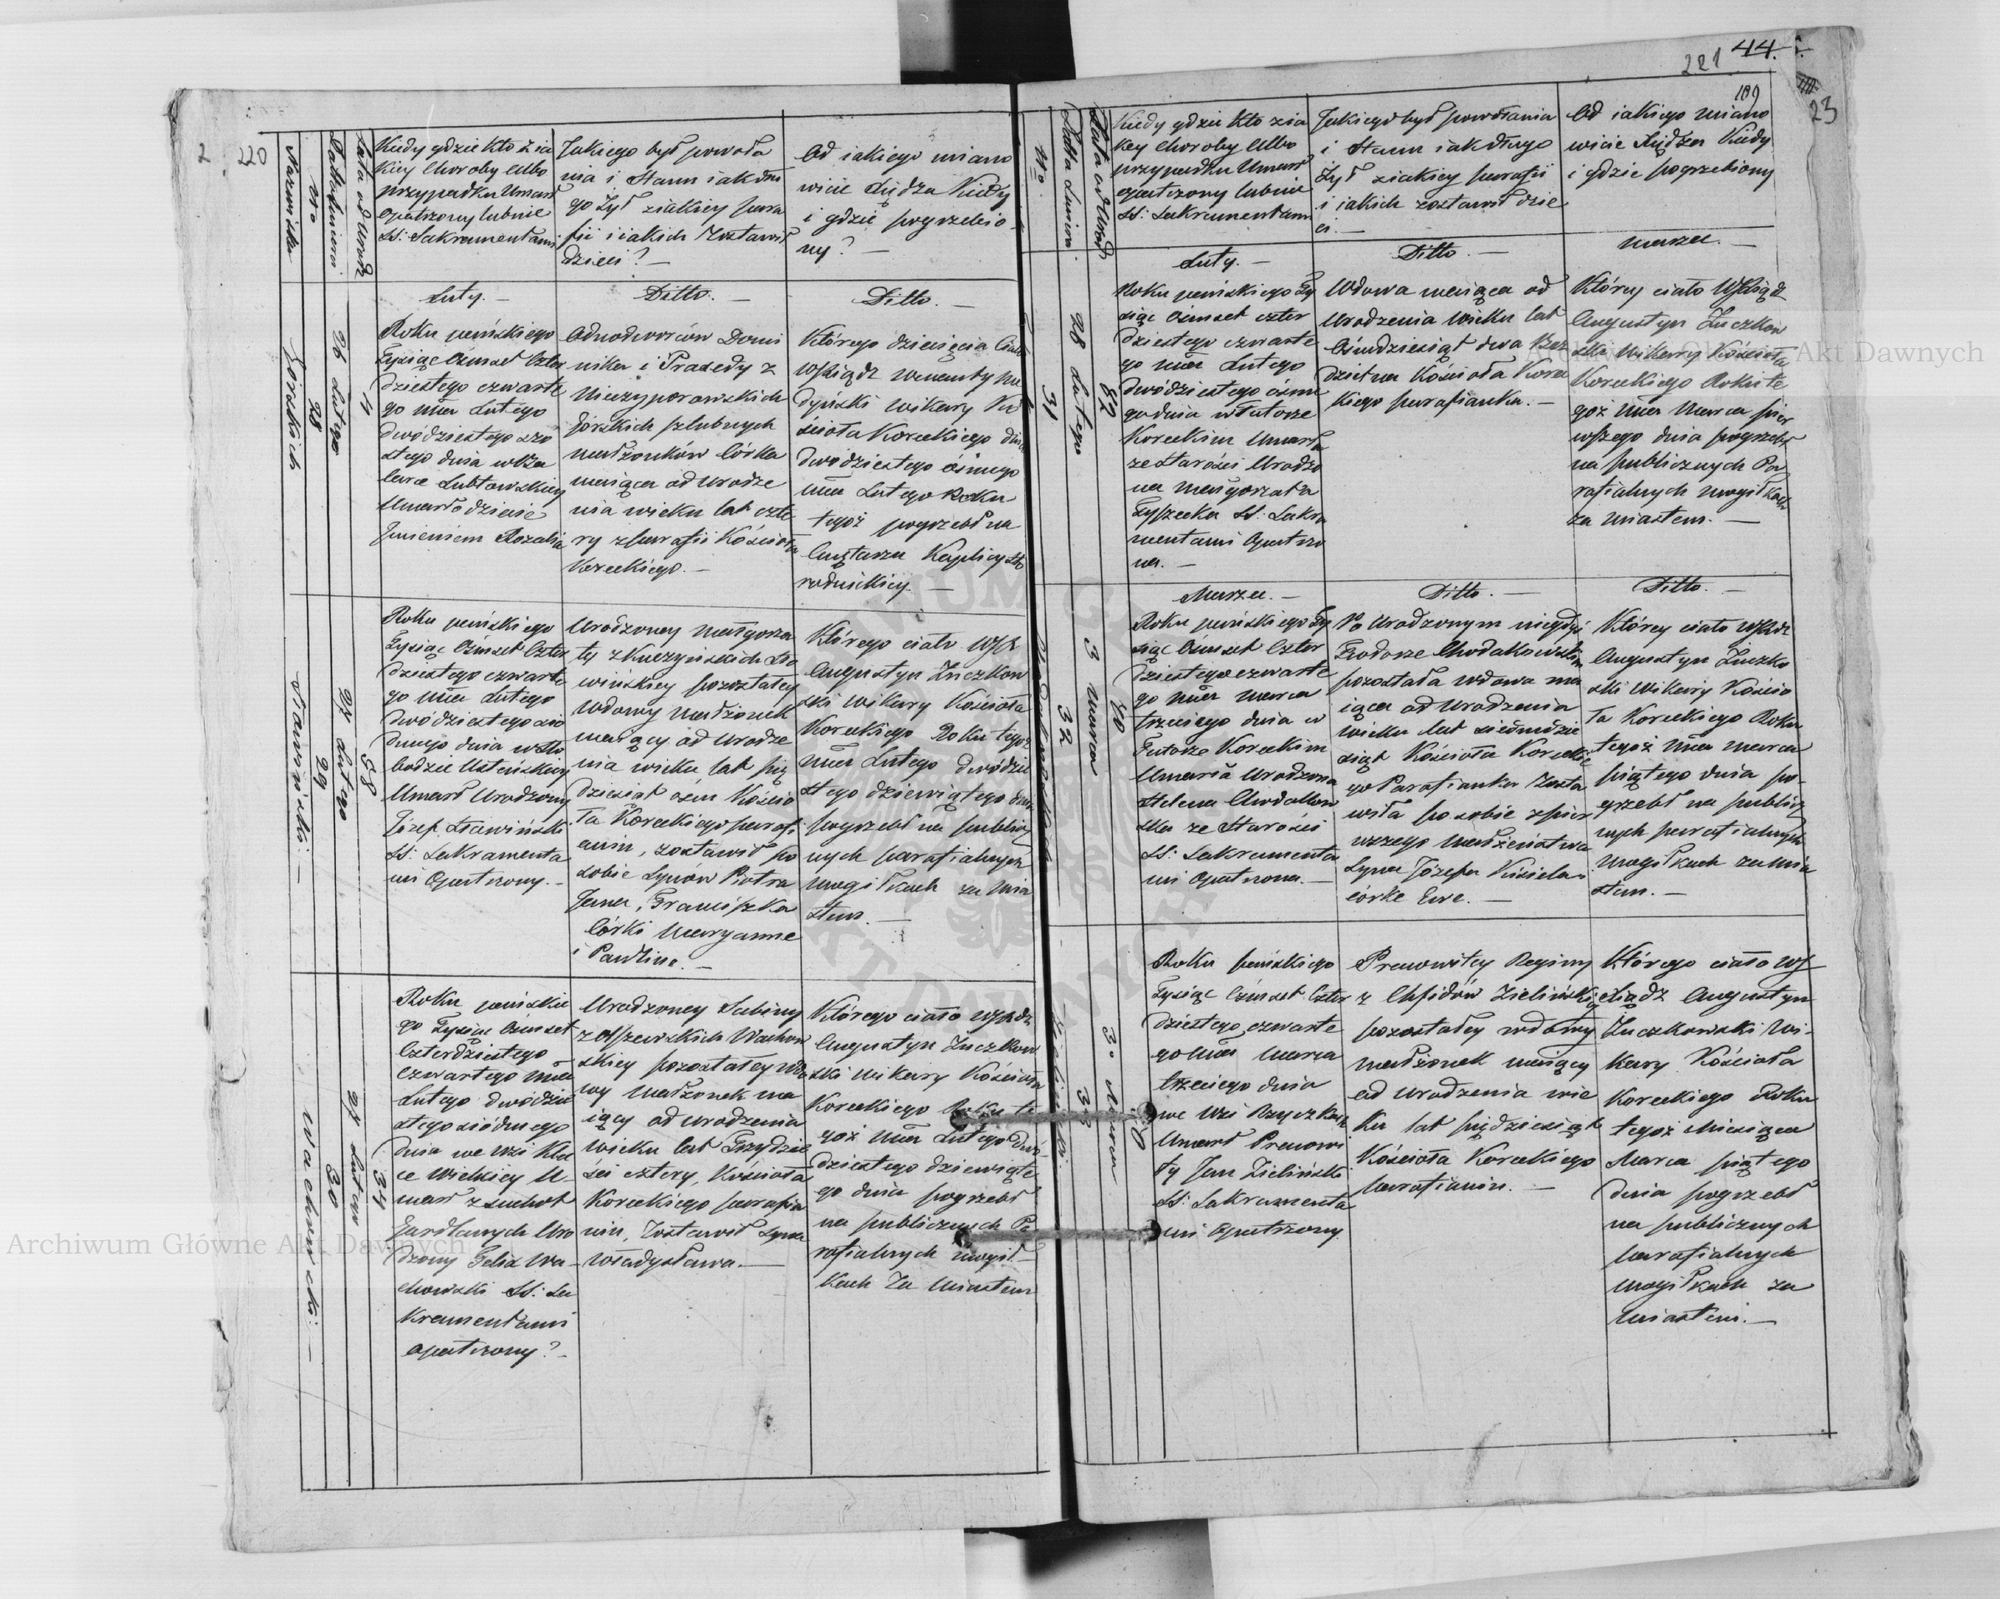 2 220
Nazwiska
Nro
Datta śmierci
Lata od Urodz
Kiedy gdzie kto z ia
kiey Choroby albo
przypadku Umarł
opatrzony lub nie
SS: Sakramentami
Jakiego był powoła
nia i Stanu iak dłu
go żył z iakiey para
fii i iakich Zostawił
dzieci? —
Od iakiego miano
wicie Xiędza Kiedy
i gdzie pogrzebio
ny? —
Górskich
28
26 Lutego
4
Luty. —
Roku
Tysiąc Ośmset Czter
dziestego czwarte
go Lutego
dwódziestego szo
stego dnia
Umarło dziecie
Imieniem Rozalia
Ditto. —
Odnodworców Domi
nika i Praxedy z
Górskich ślubnych
małżonków Córka
maiąca od urodze
nia wieku lat czte
ry z parafii Kościoła
Koreckiego. —
Ditto. —
Którego dziecięcia Ciało
Wikary Ko
ścioła Koreckiego dnia
dwódziestego ósmego
Lutego Roku
tegoż pogrzebł na
Cmętarzu Kaplicy
29
27 Lutego
58
Roku
Tysiąc Ośmset Czter
dziestego czwarte
go Lutego
dwódziestego sió
dmego dnia w Sło
bodzie
Umarł Urodzony
Józef
SS: Sakramenta
mi Opatrzony. —
Urodzoney Małgorza
ty
pozostałey
Wdowy małżonek
maiący od urodze
nia wieku lat pię
dziesiąt osm Kościo
ła Koreckiego paraf
ianin, zostawił po
sobie Synow Piotra
Jana, Franciszka
Córki Maryanne
i Pawline. —
Którego ciało
Augustyn Zuczkow
ski Wikary Kościoła
Koreckiego Roku tegoż
Lutego dwódzie
stego dziewiątego dnia
pogrzebł na publicz
nych parafialnych
mogiłkach za mia
stem. —
Wachowski —
30
27 Lutego
34
Roku
go Tysiąc Ośmset
Czterdziestego
czwartego
Lutego dwódzie
stego siódmego
dnia we Wsi
Wielkiey U-
marł z Suchot
Gardłanych Uro
dzony Felix Wa-
chowski SS: Sa
kramentami
opatrzony? —
Urodzoney Sabiny
Wachow
skiey pozostałey Wdo
wy małżonek ma
iący od urodzenia
wieku lat Trzydzie
ści cztery, Kościoła
Koreckiego parafia
nin, Zostawił Syna
Władysława. —
Którego ciało
Augustyn Zuczkow
ski Wikary Kościoła
Koreckiego Roku te
goż Lutego Dwó
dziestego dziewiąte
go dnia pogrzebł
na publicznych Pa
rafialnych mogił-
kach Za Miastem
221 44.
109
23
Nro
Datta śmierci
Lata od Urodz
Kiedy gdzie kto z ia
key choroby albo
przypadku Umarł
opatrzony lub nie
SS: Sakramentami
Jakiego był powołania
i Stanu iak długo
Żył z iakiey parafii
i iakich zostawił dzie
ci. —
Od iakiego miano
wicie Xiędza Kiedy
i gdzie pogrzebiony
31
28 Lutego
82
Luty. —
Roku Ty
siąc Ośmset czter
dziestego czwarte
go Lutego
dwódziestego ósme
go dnia w Futorze
Koreckim Umarła
ze starości Urodzo
na Małgorzata
SS: Sakra
mentami Opatrzo
na. —
Ditto. —
Wdowa maiąca od
Urodzenia wieku lat
Ośmdziesiąt dwa Bez
dzietna Kościoła Korec
kiego parafianka. —
Marzec. —
Którey ciało
Augustyn Zuczkow
ski Wikary Kościoła
Koreckiego Roku te
goż Marca pier
wszego dnia pogrzebł
na publicznych Pa
rafialnych mogiłkach
za miastem. —
32
3 Marca
70
Marzec. —
Roku Ty
siąc Ośmset Czter
dziestego czwarte
go Marca
trzeciego dnia w
Futorze Koreckim
Umarła Urodzona
Helena Chodakow
ska ze Starości
SS: Sakramenta
mi Opatrzona. —
Ditto. —
Po Urodzonym niegdyś
Teodorze Chodakowskim
pozostała wdowa ma
iąca od Urodzenia
wieku lat siedmdzie
siąt Kościoła Koreckie
go Parafianka Zosta
wiła po sobie z pier
wszego małżeństwa
Syna Józefa
córke Ewe. —
Ditto. —
Którey ciało
Augustyn Zuczko
ski Wikary Kościo
ła Koreckiego Roku
tegoż Marca
piątego dnia po-
grzebł na publicz
nych parafialnych
mogiłkach za mia
stem. —
33
3 Marca
50
Roku
Tysiąc Ośmset Czter
dziestego czwarte
go Marca
trzeciego dnia
we Wsi
Umarł Pracowi
ty Jan Zieliński
SS: Sakramenta
mi opatrzony
Pracowitey Reginy
Zielińskiey
pozostałey wdowy
małżonek maiący
od urodzenia wie
ku lat pięćdziesiąt
Kościoła Koreckiego
Parafianin. —
Którego ciało
Xiądz Augustyn
Zuczkowski Wi-
kary Kościoła
Koreckiego Roku
tegoż Miesiąca
Marca piątego
dnia pogrzebł
na publicznych
parafialnych
mogiłkach za
miastem. —
Archiwum Główne Akt Dawnych
Archiwum Główne Akt Dawnych